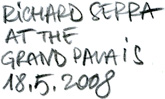 RiCHARD SERRA
AT THE
GRAND PALAiS
18.5.2008